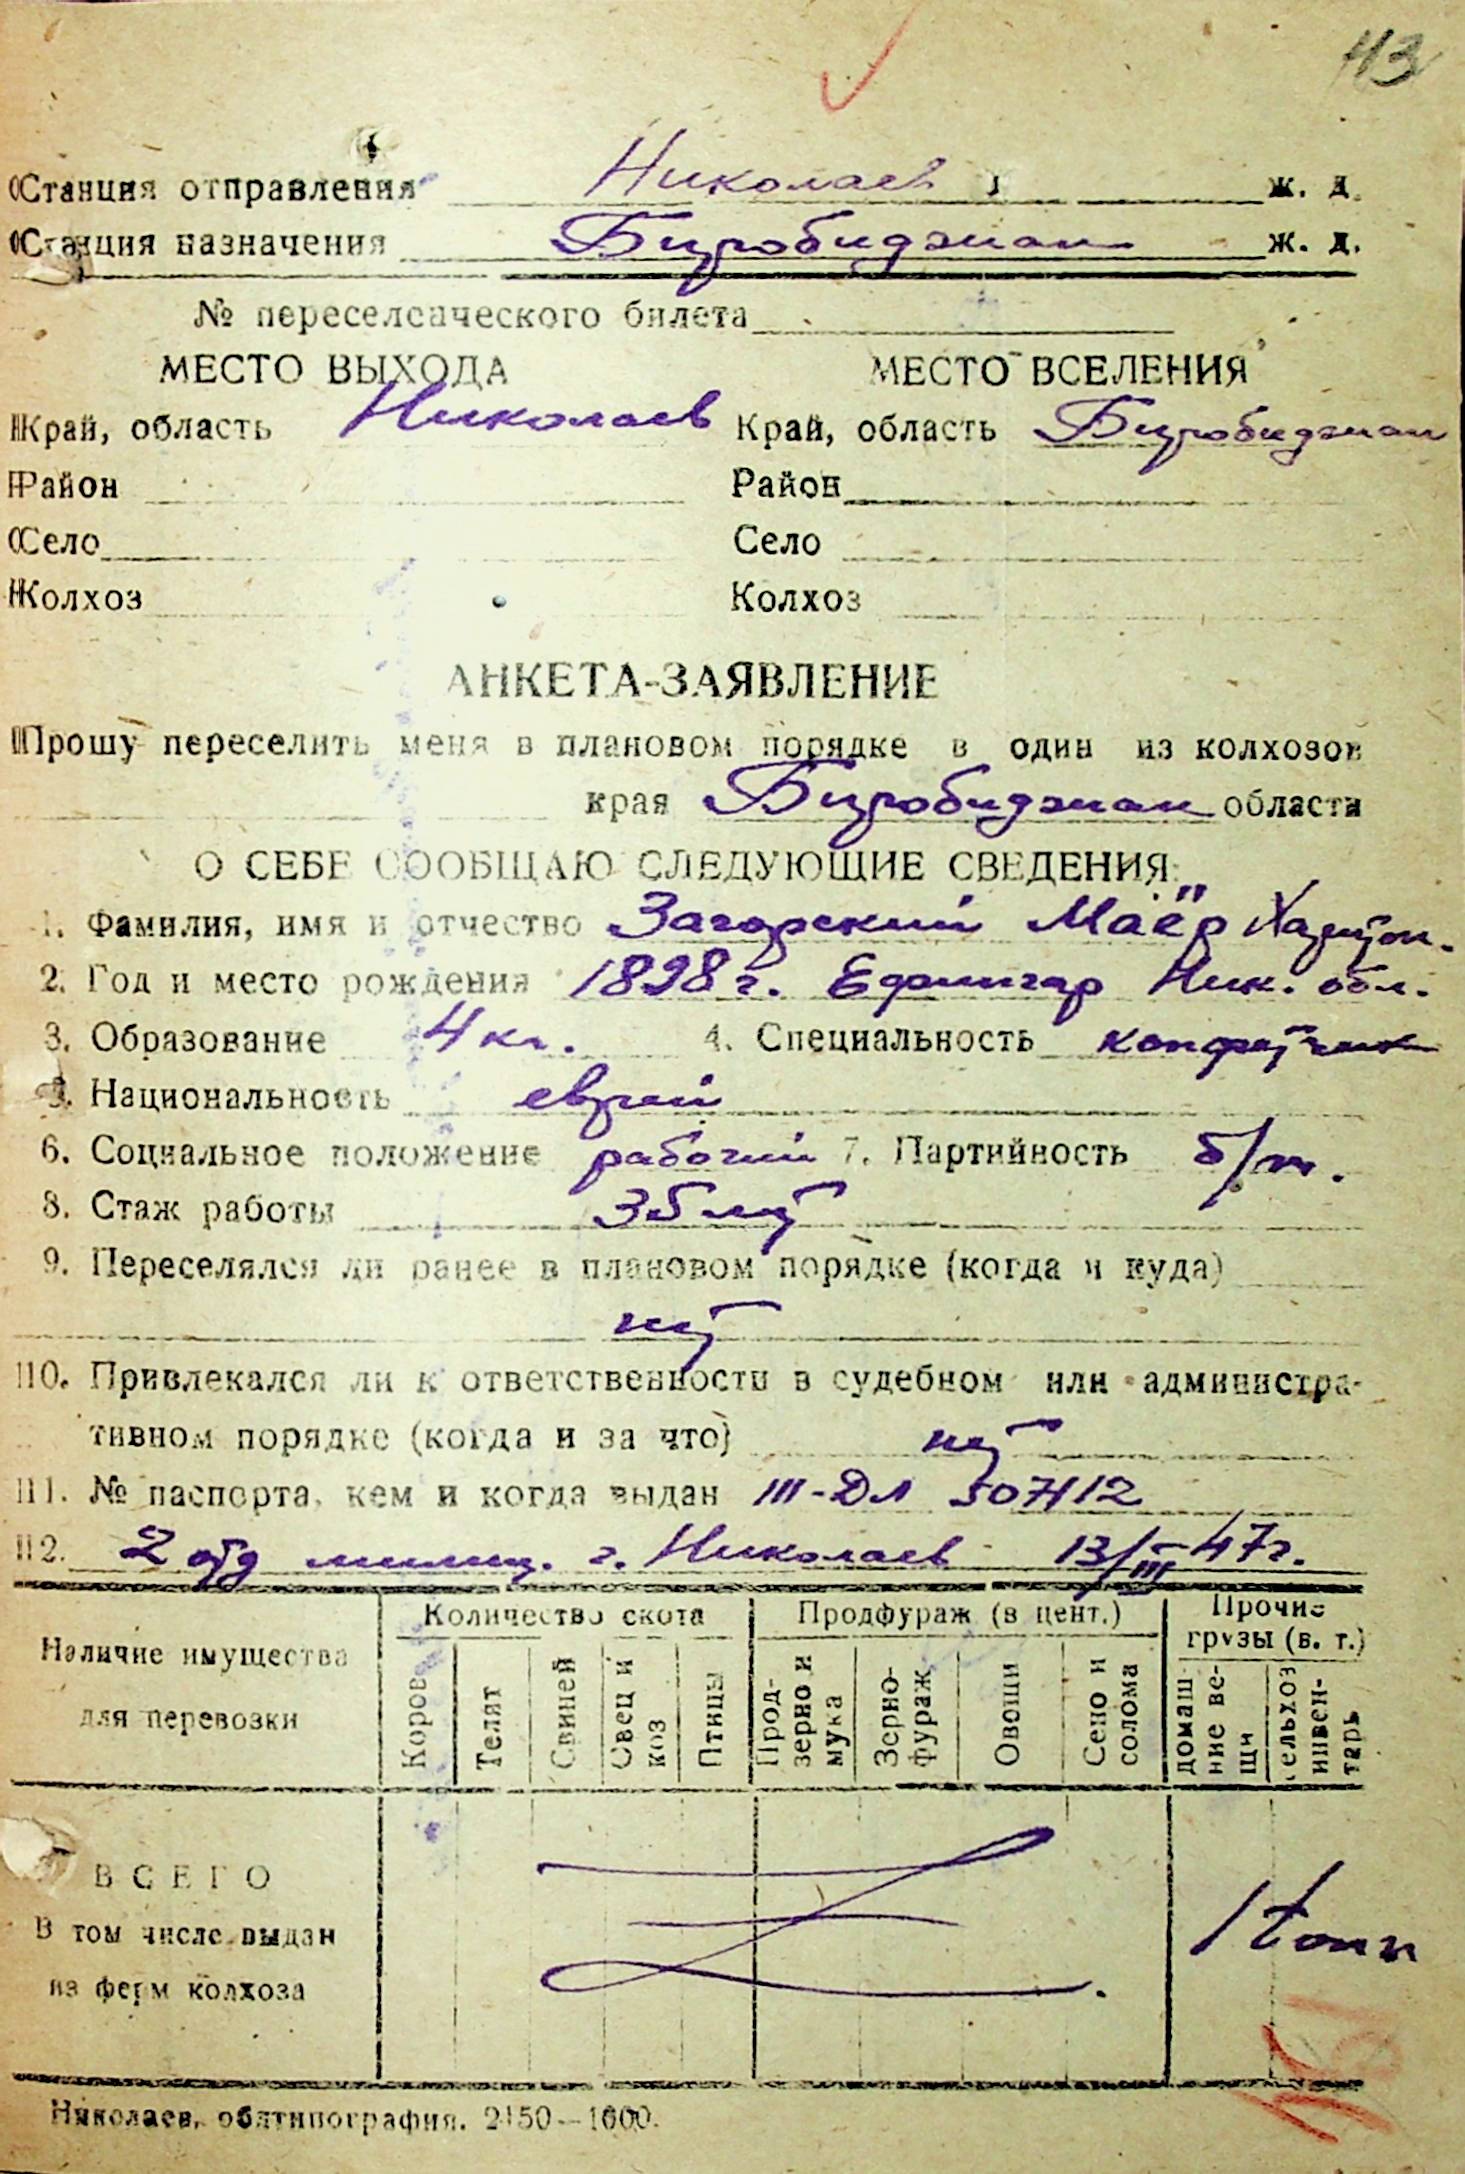 43
Станция отправления Николаев ж. д.
Станция назначения Биробиджан ж. д.
№ переселенческого билета
МЕСТО ВЫХОДА МЕСТО ВСЕЛЕНИЯ
Край, область Николаев Край, область Биробиджан
Район Район
Село Село
Колхоз Колхоз
АНКЕТА-ЗАЯВЛЕНИЕ
Прошу переселить меня в плановом порядке в один из колхозов
края Биробиджан области
О СЕБЕ СООБЩАЮ СЛЕДУЮЩИЕ СВЕДЕНИЯ:
1. Фамилия, имя и отчество Загорский Маёр
2. Год и место рождения 1898 г. Ефингар Ник. обл.
3. Образование 4 кл. 4. Специальность
5. Национальность еврей
6. Социальное положение рабочий 7. Партийность б/п.
8. Стаж работы 35 лет
9. Переселялся ли ранее в плановом порядке (когда и куда)
нет
10. Привлекался ли к ответственности в судебном или администра-
тивном порядке (когда и за что) нет
11. № паспорта, кем и когда выдан III-ДЛ 507112
12. 2 отд милиц. г. Николаев 13/III 47 г.
Наличие имущества для перевозки
Количество скота Продфураж (в цент.) Прочие грузы (в. т.)
Коров Телят Свиней Овец и коз Птицы Прод-зерно и мука Зерно-фураж Овощи Сено и солома домаш ние ве-щи сельхоз инвен-тарь
ВСЕГО
В том числе выдан
из ферм колхоза
1 тонн
Николаев, облтипография. 2150—1000.